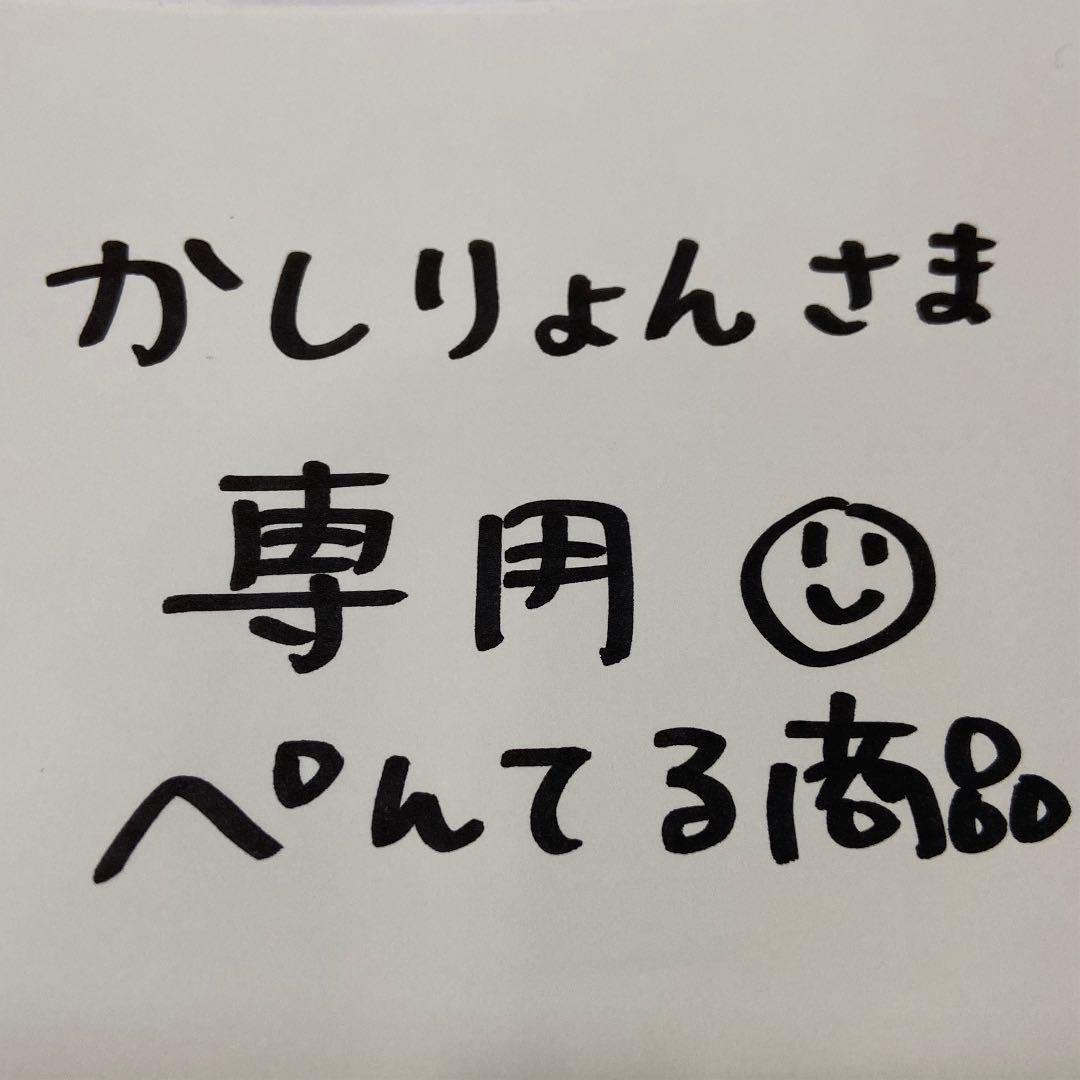 かしりょんさま
専用
ぺんてる商品